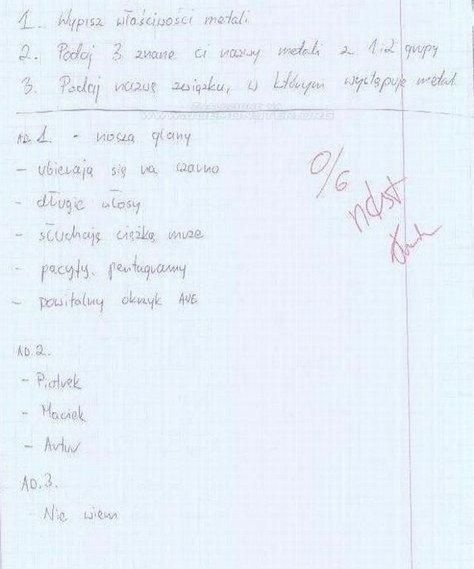 1. Wypisz właściwości metali
2. Podaj 3 znane ci nazwy metali z 1 i 2 grupy
3. Podaj nazwę związku, w którym występuje metal.
AD. 1 - noszą glany
- ubierają się na czarno
- długie włosy
- słuchają ciężką muze
- pacyfy, pentagramy
- powitalny okrzyk AVE
0/6
ndst
AD. 2.
- Piotrek
- Maciek
- Artur
AD. 3.
- Nie wiem